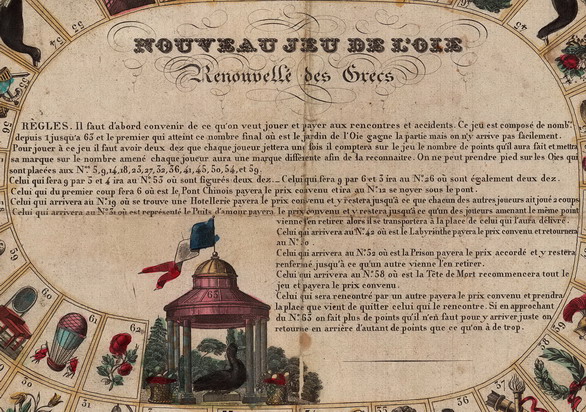 NOUVEAU JEU DE L'OIE
Renouvellé des Grecs
RÈGLES. Il faut d'abord convenir de ce qu'on veut jouer et payer aux rencontres et accidents. Ce jeu est composé de nomb.
depuis 1 jusqu'a 63 et le premier qui atteint ce nombre final où est le jardin de l'Oie gagne la partie mais on n'y arrive pas facilement.
Pour jouer à ce jeu il faut avoir deux dez que chaque joueur jettera une fois il comptera sur le jeu le nombre de points qu'il aura fait et mettra
sa marque sur le nombre amené chaque joueur aura une marque différente afin de la reconnaitre. On ne peut prendre pied sur les Oies qui
sont placées aux Nos 5, 9, 14, 18, 23, 27, 32, 36, 41, 45, 50, 54, et 59.
Celui qui fera 9 par 5 et 4 ira au No 53 où sont figurés deux dez... Celui qui fera 9 par 6 et 3 ira au No 26 où sont également deux dez.
Celui qui du premier coup fera 6 où est le Pont Chinois payera le prix convenu et ira au No 12 se noyer sous le pont.
Celui qui arrivera au No 19 où se trouve une Hotellerie payera le prix convenu et y restera jusqu'à ce que chacun des autres joueurs ait joué 2 coups
Celui qui arrivera au No 31 où est représenté le Puits d'amour payera le prix convenu et y restera jusqu'à ce qu'un des joueurs amenant le même point
vienne l'en retirer alors il se transportera à la place de celui qui l'aura délivré.
Celui qui arrivera au No 42 où est le Labyrinthe payera le prix convenu et retournera
au No 30
Celui qui arrivera au No 52 où est la Prison payera le prix accordé et y restera
renfermé jusqu'à ce qu'un autre vienne l'en retirer.
Celui qui arrivera au No 58 où est la Tête de Mort recommencera tout le
jeu et payera le prix convenu.
Celui qui sera rencontré par un autre payera le prix convenu et prendra
la place que vient de quitter celui qui le rencontre. Si en approchant
du No 63 on fait plus de points qu'il n'en faut pour y arriver juste on
retourne en arrière d'autant de points que ce qu'on à de trop.
63
62
61
60
30
31
55
54
56